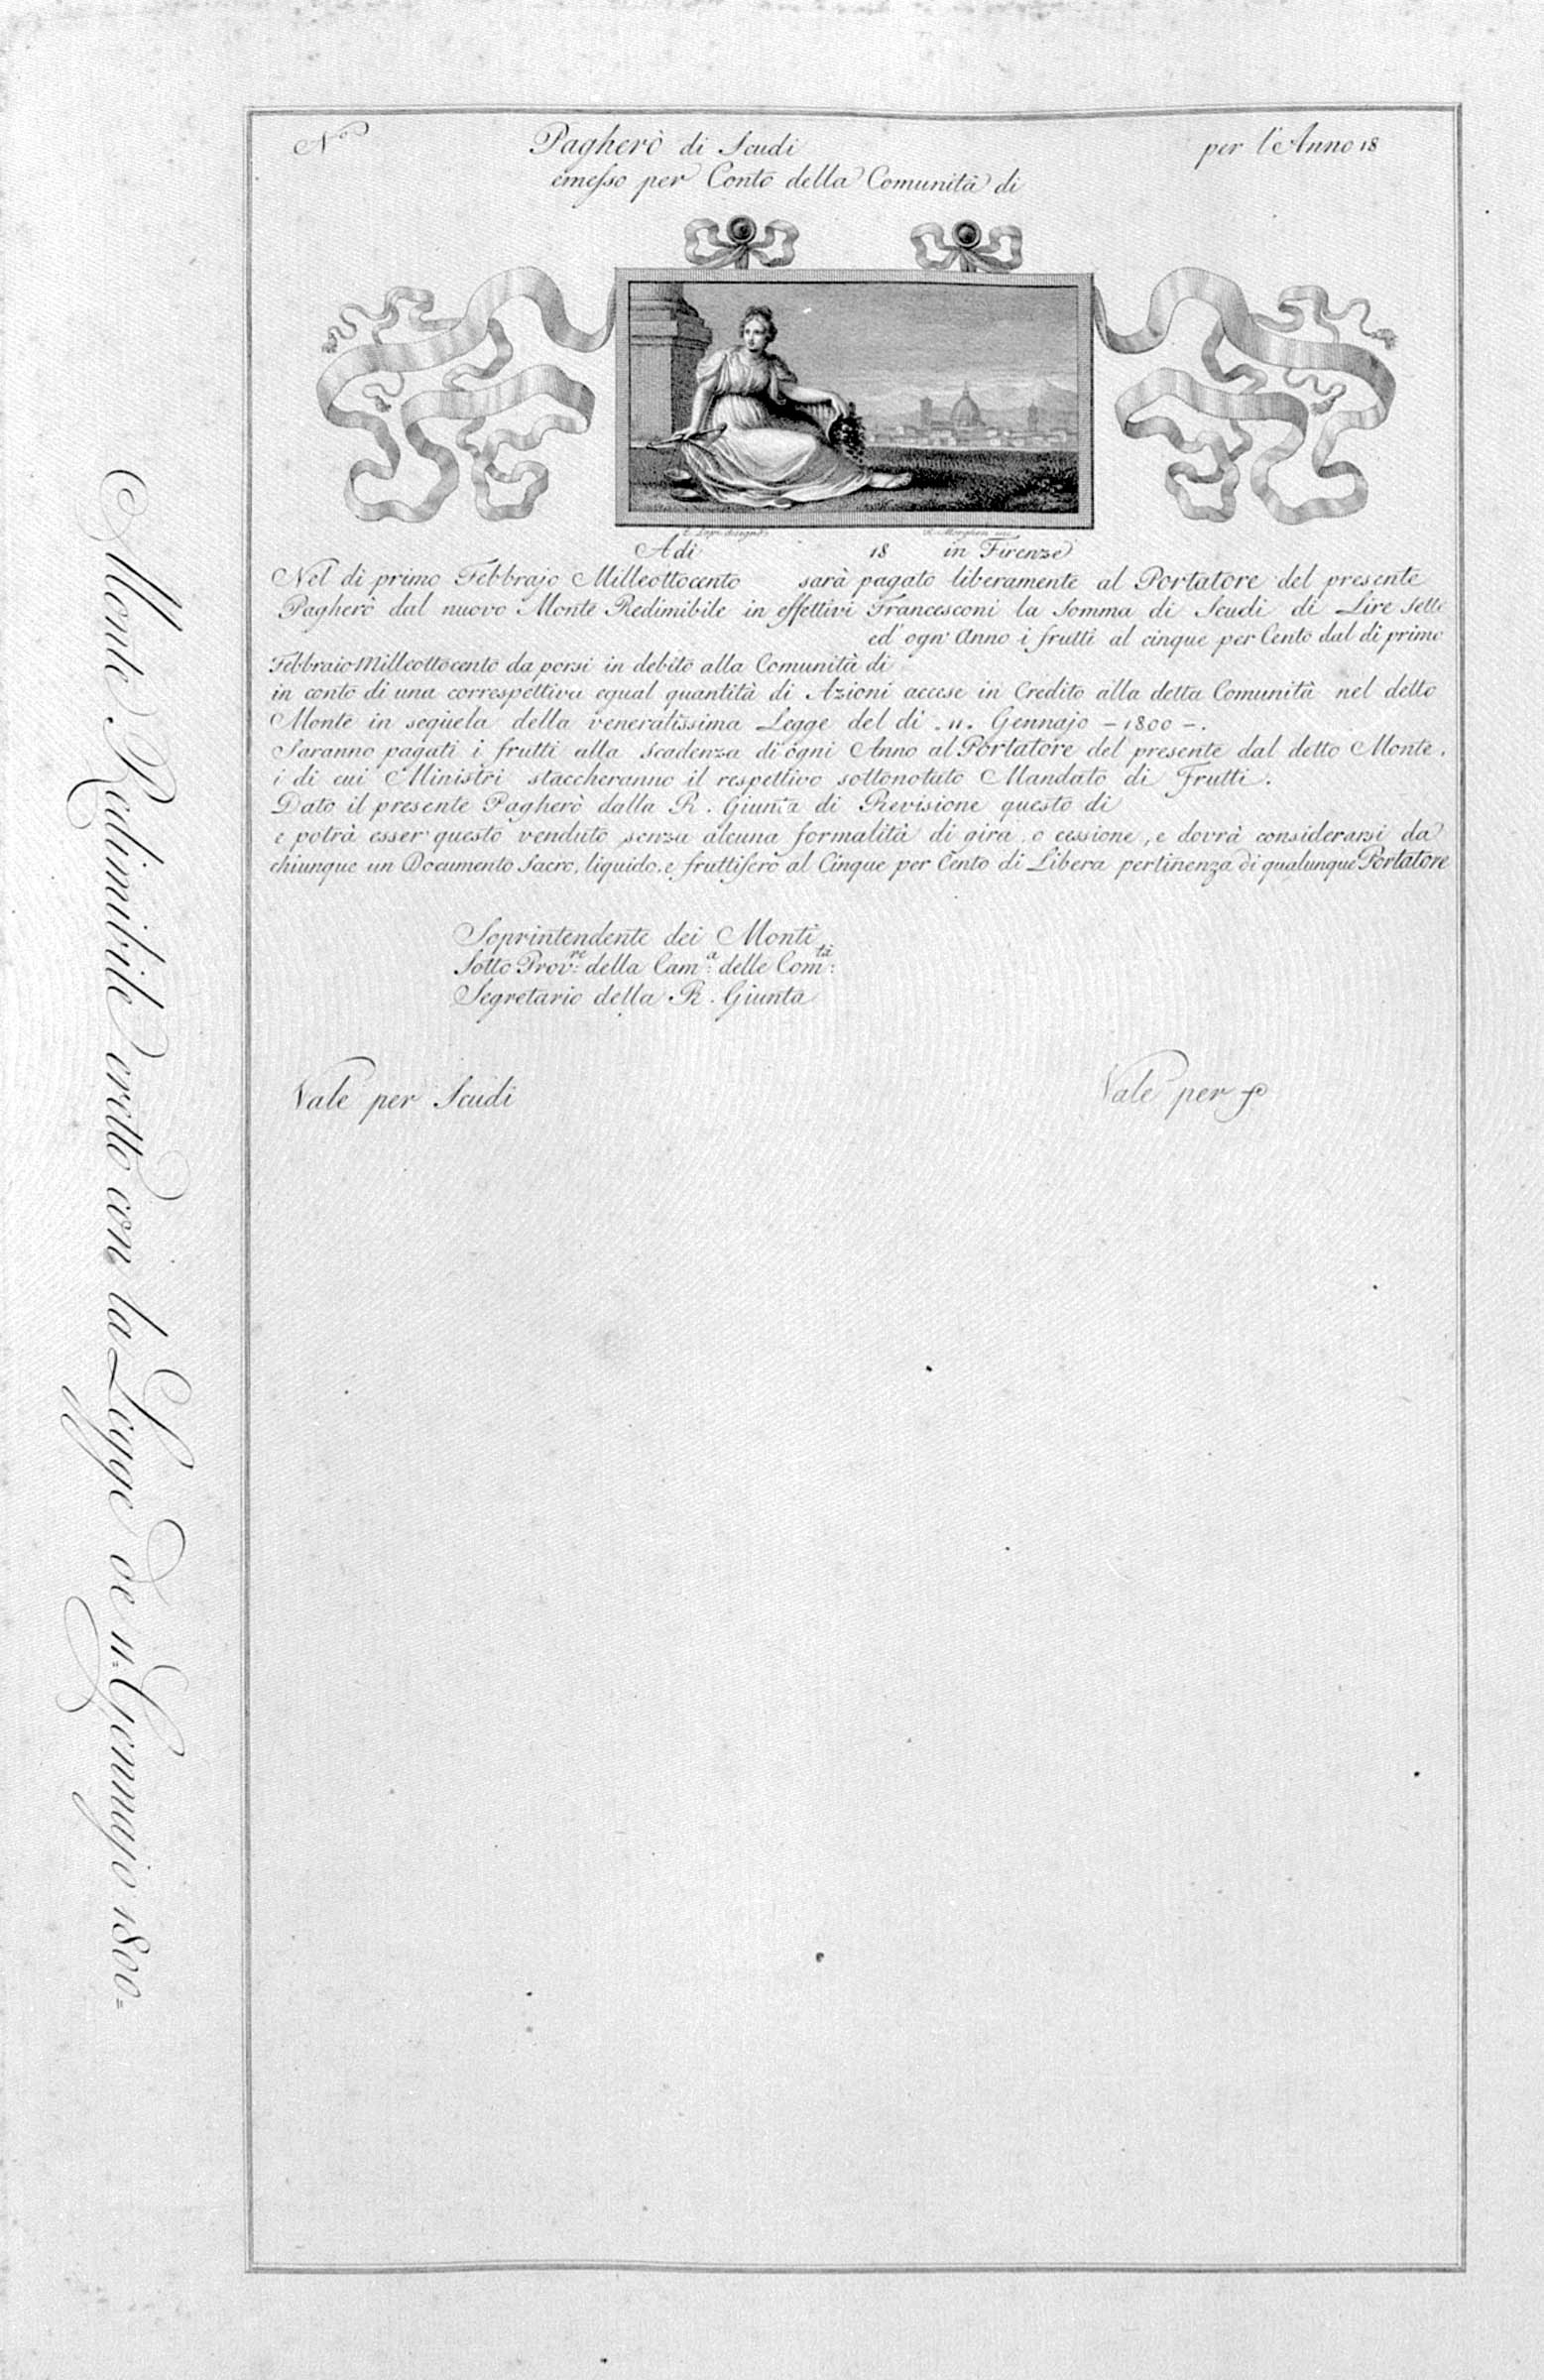 N.º Pagherò di Scudi per l'Anno 18
emesso per Conto della Comunità di
R. Morghen inc.
A di 18 in Firenze
Nel di primo Febbrajo Milleottocento sarà pagato liberamente al Portatore del presente
Pagherò dal nuovo Monte Redimibile in effettivi Francesconi la Somma di Scudi di Lire Sette
ed' ogn' Anno i frutti al cinque per Cento dal di primo
Febbraio Milleottocento da porsi in debito alla Comunità di
in conto di una correspettiva egual quantità di Azioni accese in Credito alla detta Comunità nel detto
Monte in sequela della veneratissima Legge del di .11. Gennajo – 1800 –.
Saranno pagati i frutti alla Scadenza di ogni Anno al Portatore del presente dal detto Monte.
i di cui Ministri staccheranno il respettivo sottonotato Mandato di Frutti.
Dato il presente Pagherò dalla R. Giunta di Revisione questo di
e potrà esser questo venduto senza alcuna formalità di gira, o cessione, e dovrà considerarsi da
chiunque un Documento Sacro, liquido, e fruttifero al Cinque per Cento di Libera pertinenza di qualunque Portatore
Soprintendente dei Monti
Sotto Prov.re della Cam.a delle Com.tà:
Segretario della R. Giunta
Vale per Scudi Vale per
Monte Redimibile eretto con la Legge de 11=Gennajo 1800=